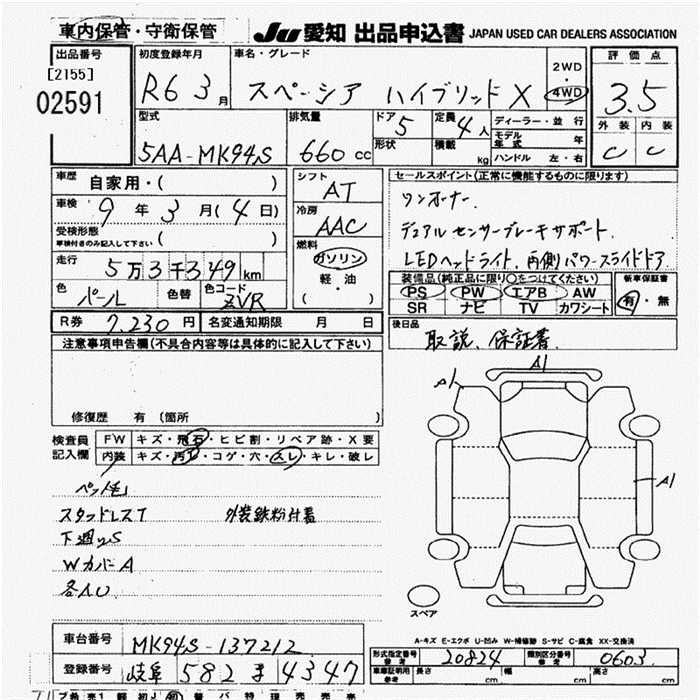 車内保管・守衛保管
JU 愛知 出品申込書 JAPAN USED CAR DEALERS ASSOCIATION
出品番号
[2155]
02591
初度登録年月
R6 3月
車名・グレード
スペーシア ハイブリッド X
2WD
・
4WD
評価点
3.5
外装 内装
C C
型式
5AA-MK94S
排気量
660 cc
ドア 5
形状
定員 4人
積載 kg
ディーラー・並行
モデル年式 年
ハンドル 左・右
車歴 自家用・( )
車検 9年 3月(4日)
受検形態
車検付きのみ記入して下さい ( )
走行 5万3千349km
色 パール 色替 色コード ZVR
シフト
AT
冷房
AAC
燃料
ガソリン
軽油
( ・ )
セールスポイント(正常に機能するものに限ります)
ワンオーナー.
デュアルセンサーブレーキサポート.
LEDヘッドライト. 両側パワースライドドア.
装備品(純正品に限り○をつけてください)
PS PW エアB AW
SR ナビ TV カワシート
新車保証書
有・無
R券 7,230円 名変通知期限 月 日
後日品
取説、保証書.
注意事項申告欄(不具合内容等は具体的に記入して下さい)
修復歴 有 (箇所 )
検査員記入欄
FW キズ・飛石・ヒビ割・リペア跡・X要
内装 キズ・汚れ・コゲ・穴・スレ・キレ・破レ
スタッドレスT 外装鉄粉付着
下廻りS
WカバーA
各AU
A1
A1
A1
スペア
A-キズ E-エクボ U-凹み W-補修跡 S-サビ C-腐食 XX-交換済
車台番号 MK94S-137212
登録番号 岐阜 582 ま 4347
型式指定番号 参考 20824 類別区分番号 参考 0603
車庫証明用 参考 長さ cm 幅 cm 高さ cm